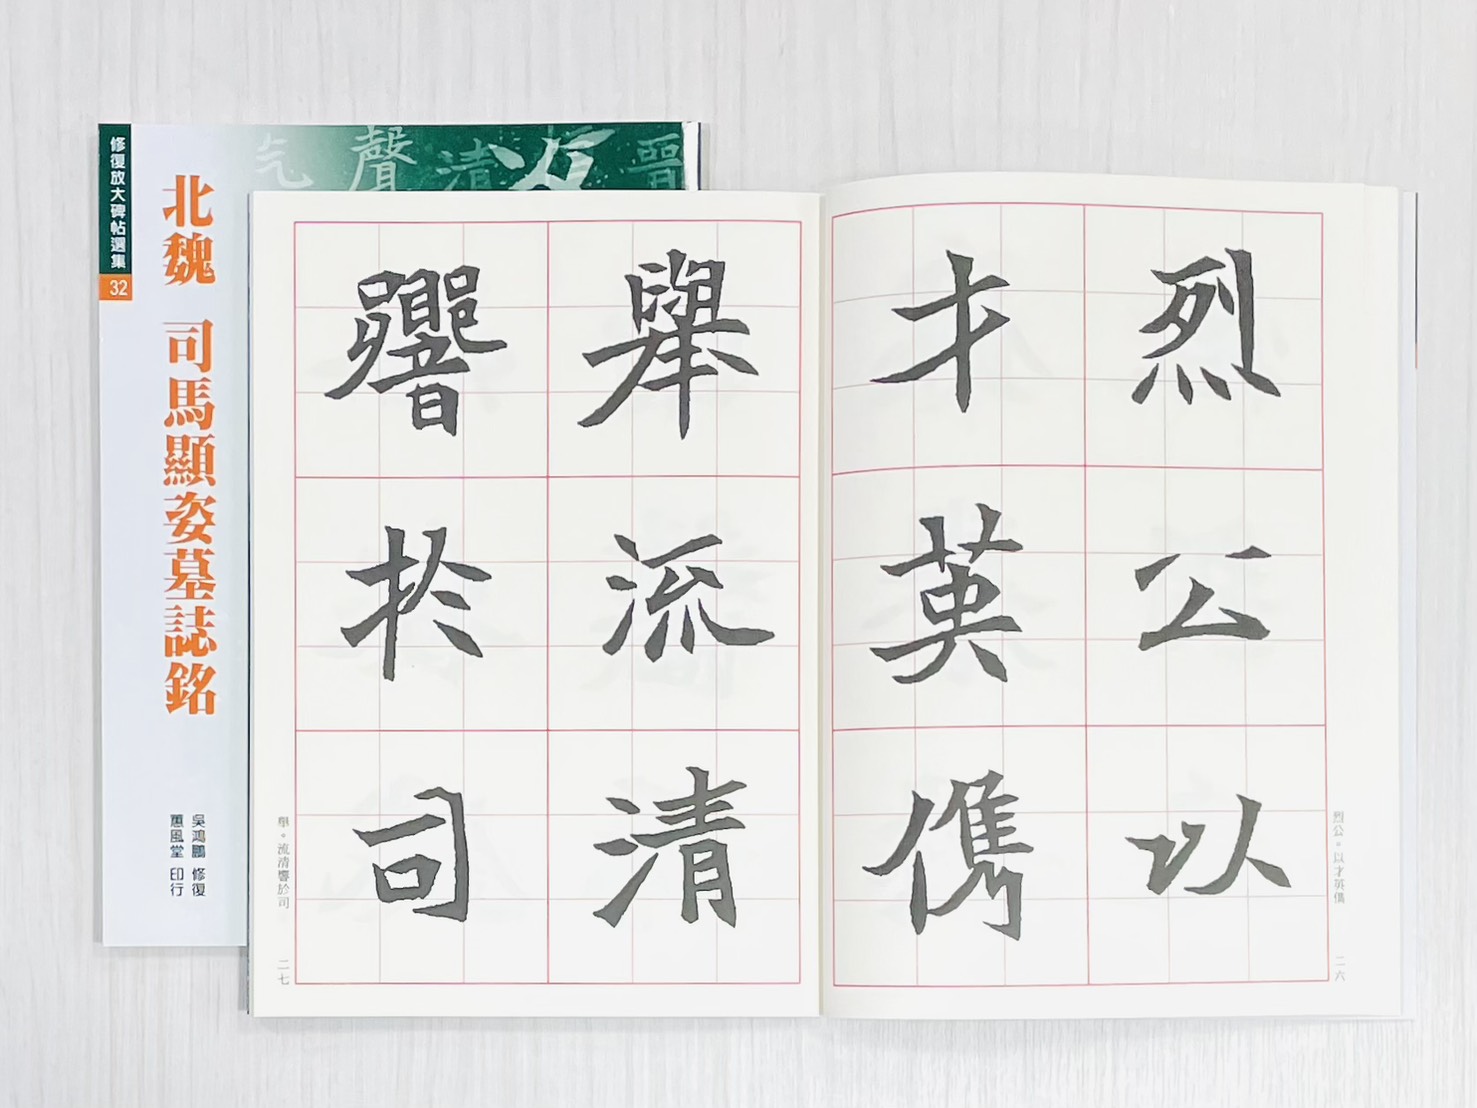 修復放大碑帖選集
32
北魏 司馬顯姿墓誌銘
吳鴻鵬 修復
蕙風堂 印行
气
聲
清
響
烈公以
才英儁
烈公。以才英儁
二六
舉流清
響於司
舉。流清響於司
二七